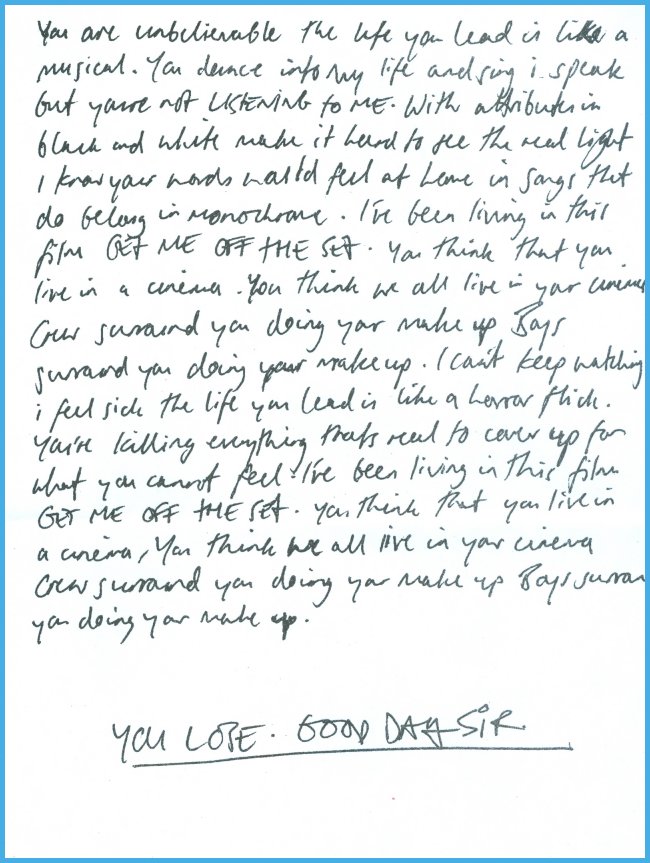 You are unbelievable the life you lead is like a
musical. You dance into my life and sing i speak
but you're not LISTENING to ME. With attributes in
black and white make it hard to see the real light
I know your words would feel at home in songs that
do belong in monochrome. I've been living in this
film GET ME OFF THE SET. You think that you
live in a cinema. You think we all live in your cinema
Crew surround you doing your make up Boys
surround you doing your makeup. I can't keep watching
i feel sick the life you lead is like a horror flick.
You're killing everything that's real to cover up for
what you cannot feel. I've been living in this film
GET ME OFF THE SET. You think that you live in
a cinema, You think we all live in your cinema
Crew surround you doing your make up Boys surroun
you doing your make up.
YOU LOSE. GOOD DAY SIR